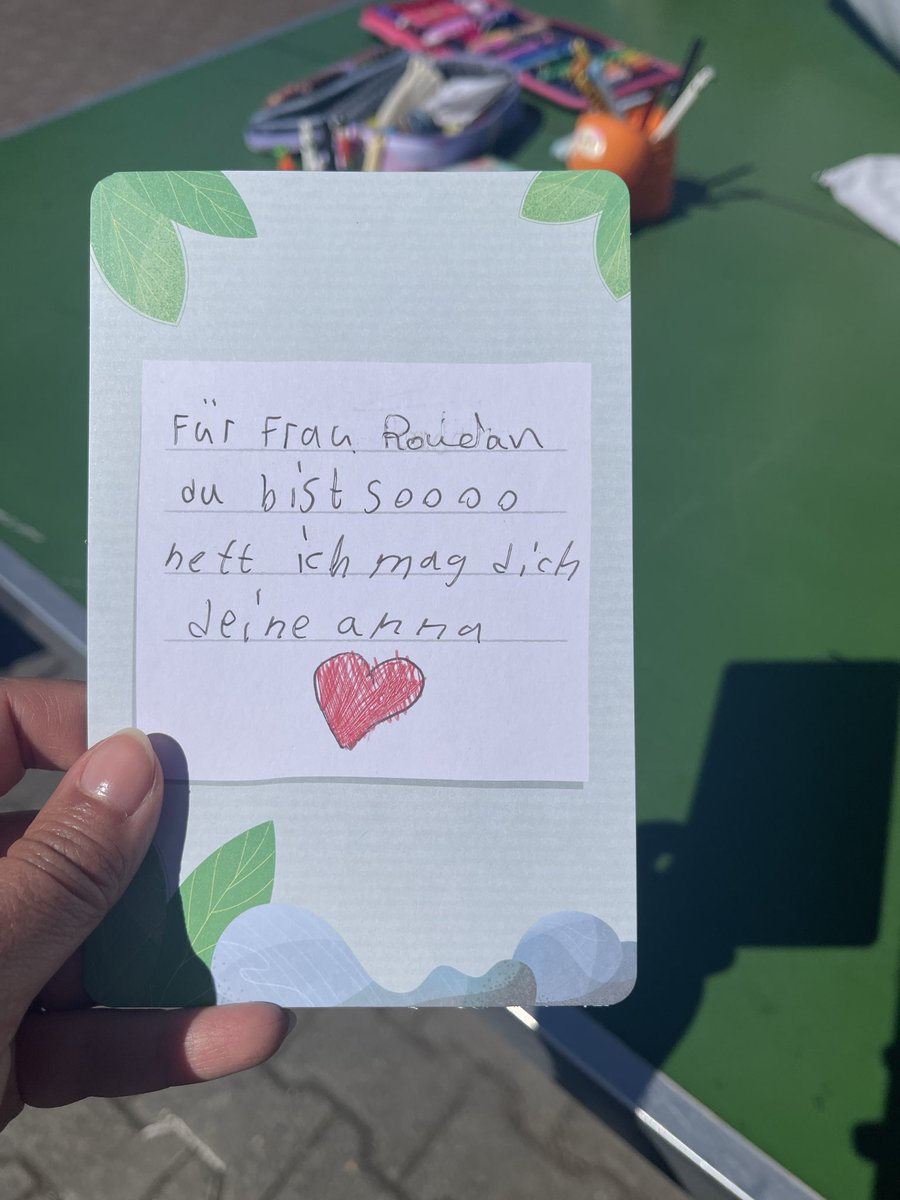 Für Frau Roudan
du bist soooo
nett ich mag dich
deine anna